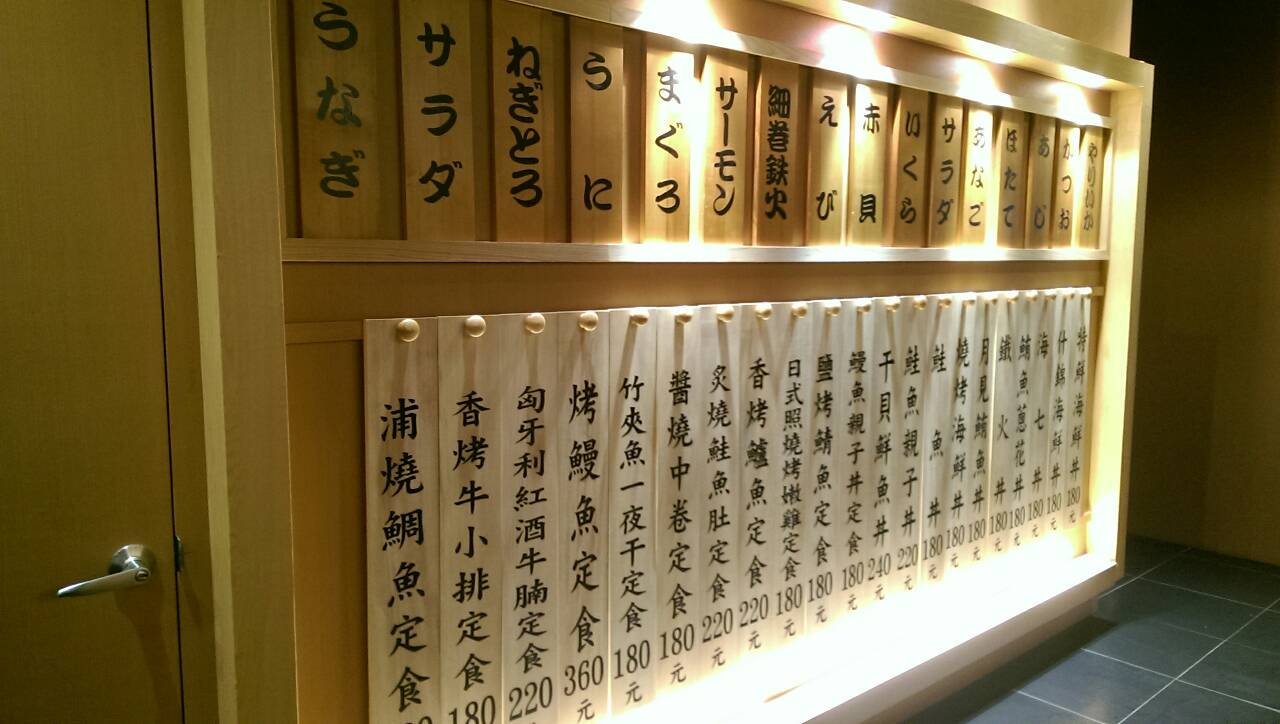 うなぎ
サラダ
ねぎとろ
うに
まぐろ
サーモン
細巻鉄火
えび
赤貝
いくら
サラダ
あなご
ほたて
あじ
かつお
やりいか
浦燒鯛魚定食
香烤牛小排定食180
匈牙利紅酒牛腩定食220
烤鰻魚定食360元
竹夾魚一夜干定食180元
醬燒中卷定食180元
炙燒鮭魚肚定食220元
香烤鱸魚定食220元
日式照燒烤嫩雞定食180元
鹽烤鯖魚定食180元
鰻魚親子丼定食180元
干貝鮮魚丼240元
鮭魚親子丼220元
鮭魚丼180元
燒烤海鮮丼180元
月見鮪魚丼180元
鐵火丼180元
鮪魚蔥花丼180元
海七丼180元
什錦海鮮丼180元
特鮮海鮮丼180元